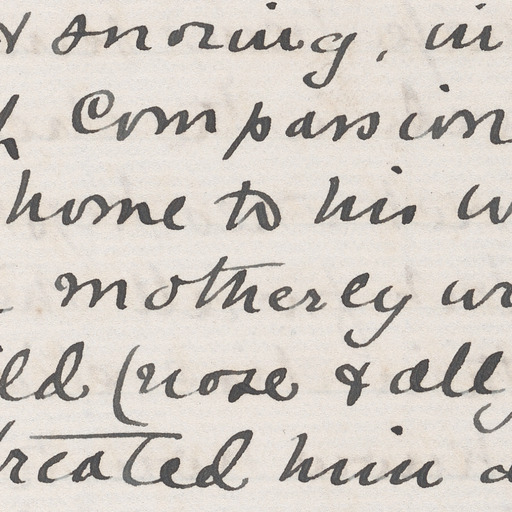 & snoring, in
Compassion
home to his
motherly
(nose & all
treated him